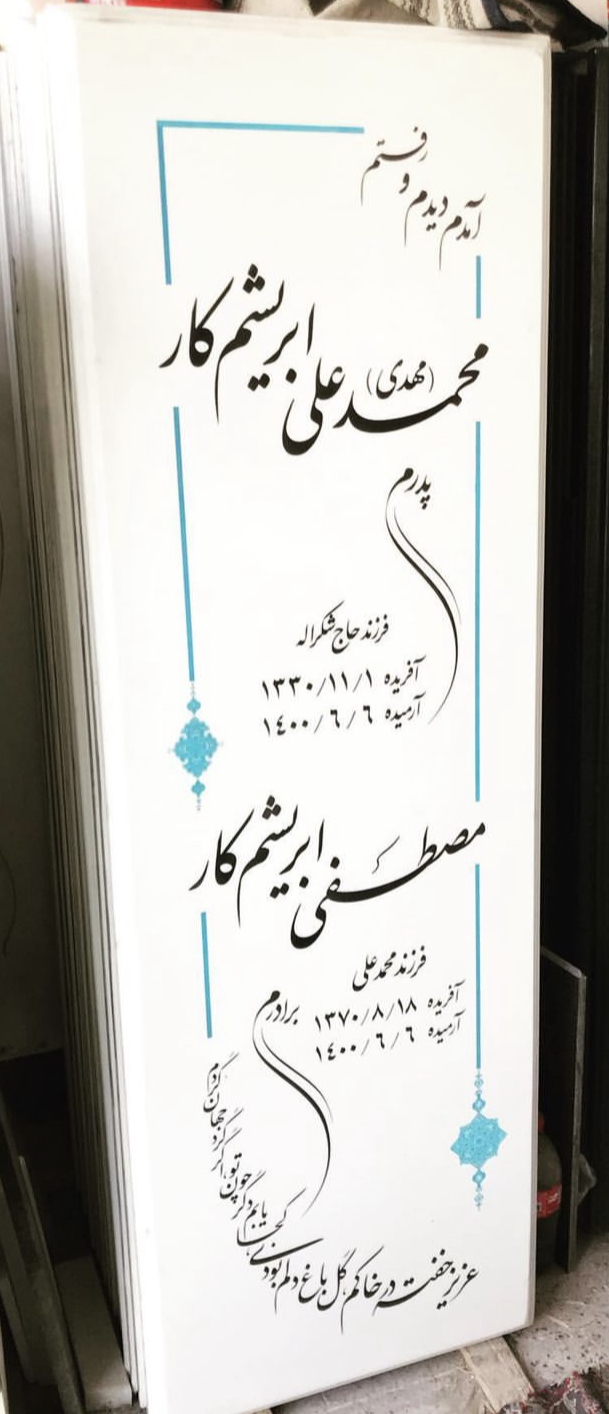 آمدم دیدم و رفتم
محمد علی (مهدی) ابریشم کار
پدرم
فرزند حاج شکراله
آفریده ۱۳۳۰/۱۱/۱
آرمیده ۱٤۰۰/٦/٦
مصطفی ابریشم کار
فرزند محمد علی
برادرم
آفریده ۱۳۷۰/۸/۱۸
آرمیده ۱٤۰۰/٦/٦
عزیز خفته در خاکم، گل باغ دلم بودی
کجا یابم دگر چون تو، اگر گرد جهان گردم